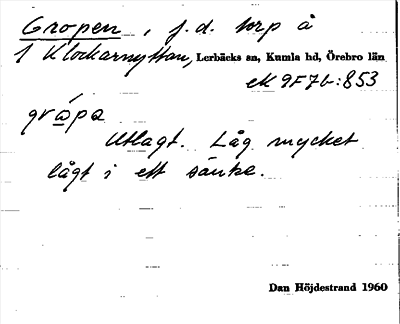 Gropen, f.d. torp å
1 Klockarnyttan, Lerbäcks sn, Kumla hd, Örebro län
ek 9F7b:853
grå̀pa
Utlagt. Låg mycket
lågt i ett sänke.
Dan Höjdestrand 1960